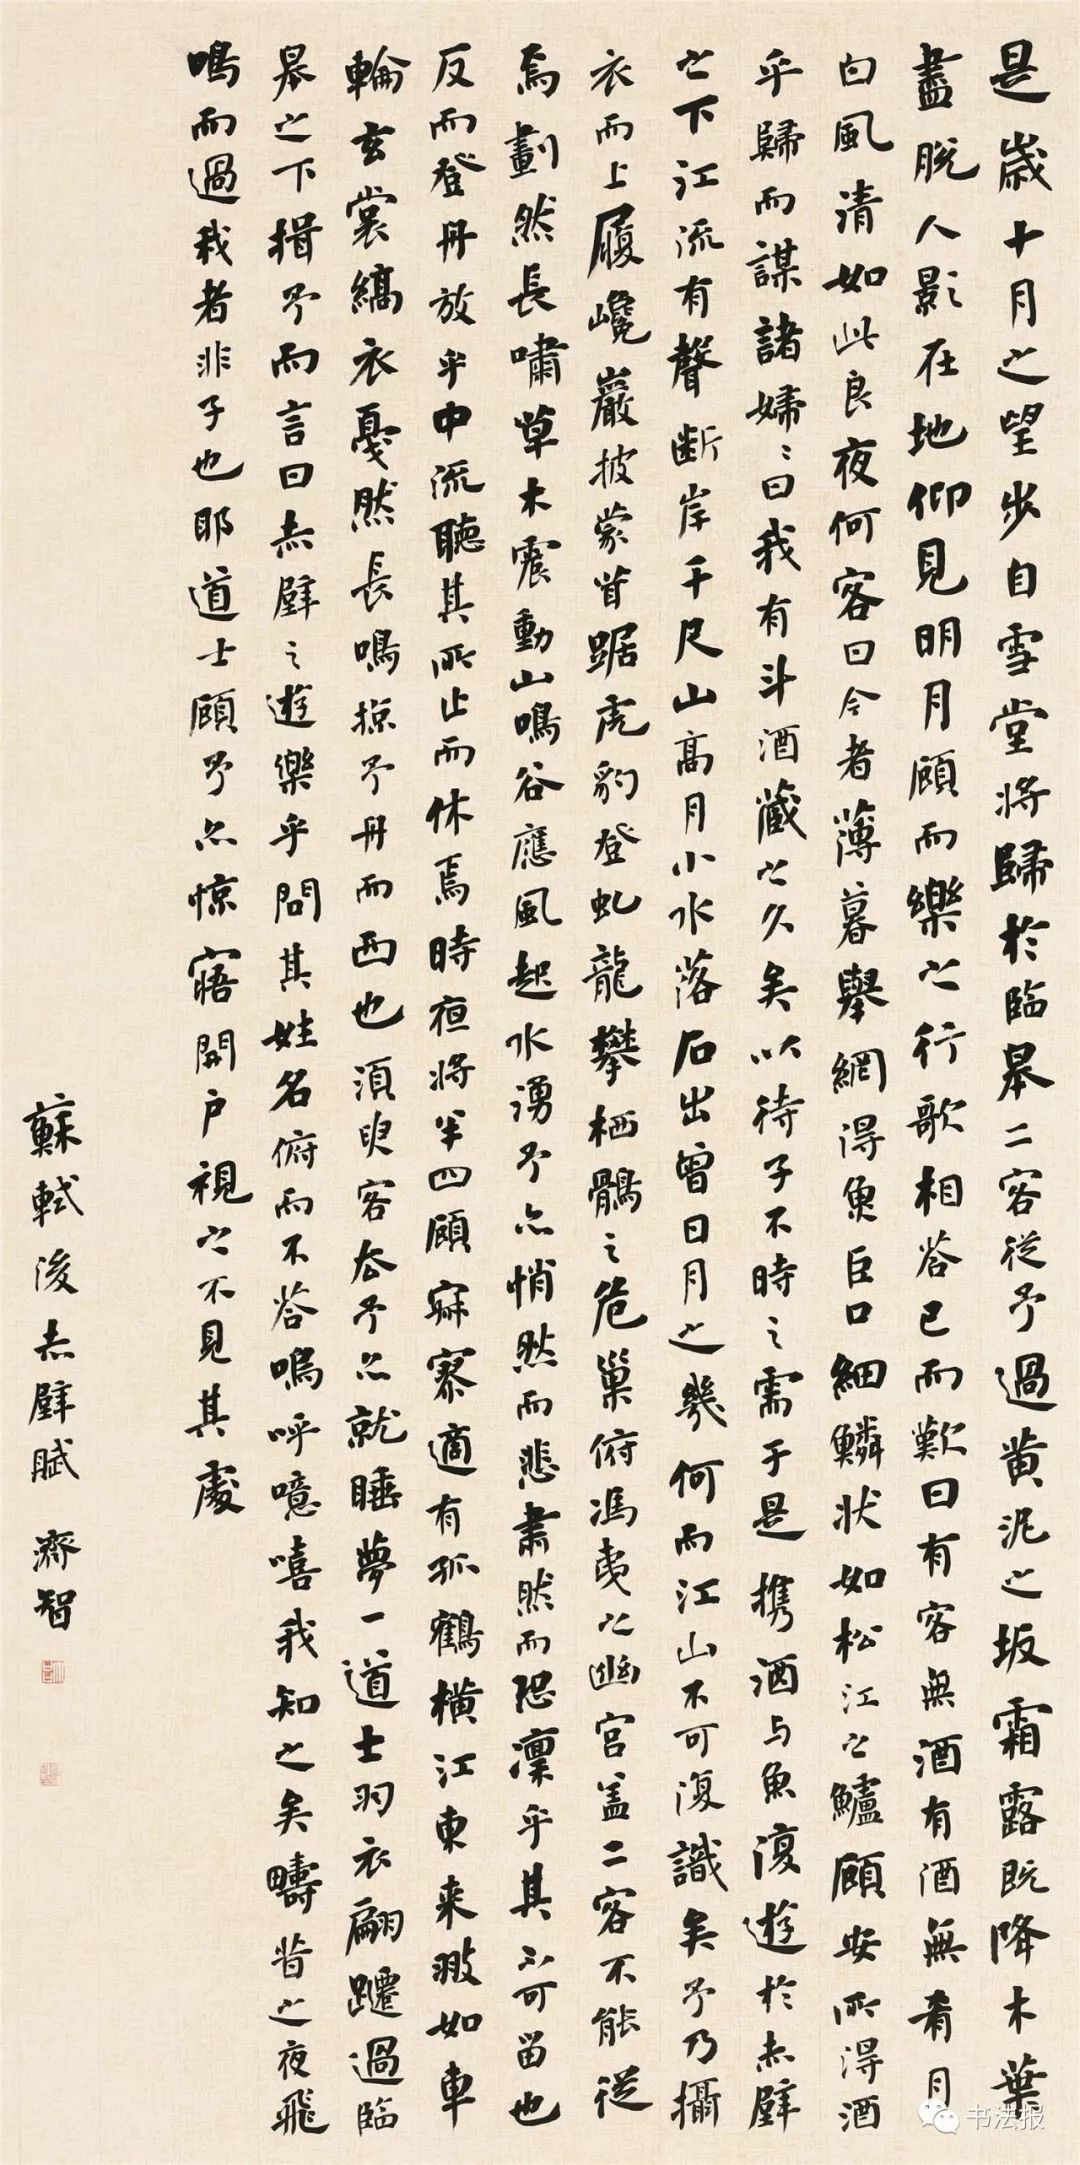 是歲十月之望步自雪堂將歸於臨皋二客從予過黃泥之坂霜露既降木葉
盡脫人影在地仰見明月顧而樂之行歌相答已而歎曰有客無酒有酒無肴月
白風清如此良夜何客曰今者薄暮舉網得魚巨口細鱗狀如松江之鱸顧安所得酒
乎歸而謀諸婦〻曰我有斗酒藏之久矣以待子不時之需于是攜酒与魚復遊於赤壁
之下江流有聲斷岸千尺山高月小水落石出曾日月之幾何而江山不可復識矣予乃攝
衣而上履巉巖披蒙茸踞虎豹登虬龍攀栖鶻之危巢俯馮夷之幽宮蓋二客不能從
焉劃然長嘯草木震動山鳴谷應風起水湧予亦悄然而悲肅然而恐凜乎其不可留也
反而登舟放乎中流聽其所止而休焉時夜將半四顧寂寥適有孤鶴橫江東来翅如車
輪玄裳縞衣戛然長鳴掠予舟而西也須臾客去予亦就睡夢一道士羽衣翩躚過臨
皋之下揖予而言曰赤壁之遊樂乎問其姓名俯而不答嗚呼噫嘻我知之矣疇昔之夜飛
鳴而過我者非子也耶道士顧予亦惊寤開户視之不見其處
蘇軾後赤壁賦 濟智
书法报